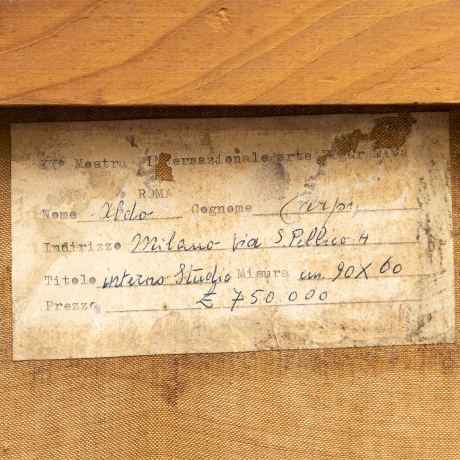 XX° Mostra Internazionale arte
ROMA
Nome Aldo Cognome Carpi
Indirizzo Milano via S. Pellico 4
Titolo interno Studio Misura cm. 90X60
Prezzo £ 750.000